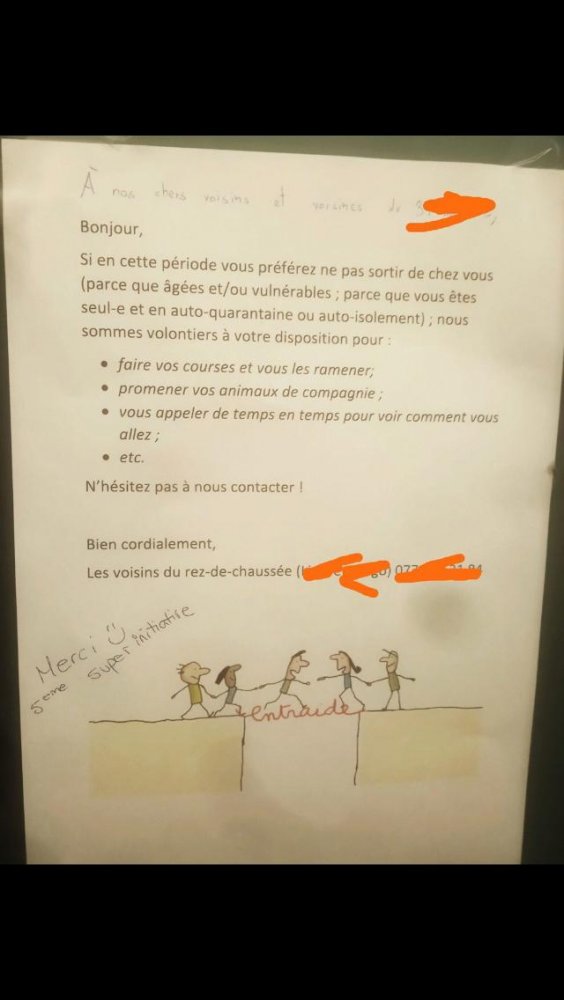 À nos chers voisins et voisines du
Bonjour,
Si en cette période vous préférez ne pas sortir de chez vous
(parce que âgées et/ou vulnérables ; parce que vous êtes
seul-e et en auto-quarantaine ou auto-isolement) ; nous
sommes volontiers à votre disposition pour :
• faire vos courses et vous les ramener;
• promener vos animaux de compagnie ;
• vous appeler de temps en temps pour voir comment vous
allez ;
• etc.
N'hésitez pas à nous contacter !
Bien cordialement,
Les voisins du rez-de-chaussée (
Merci
5eme super initiative
entraide